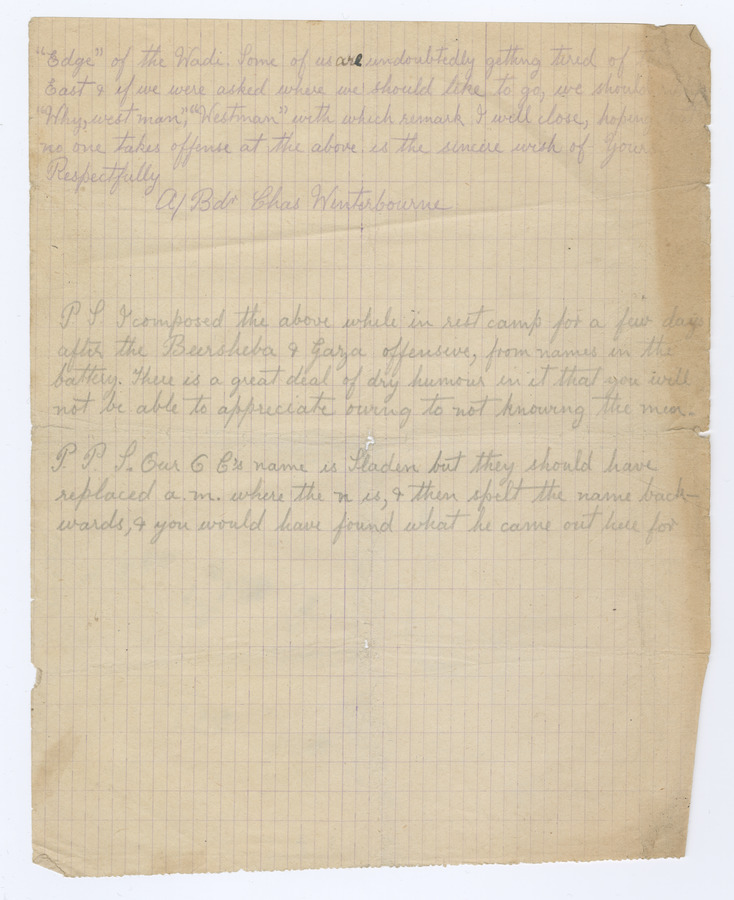 "Edge" of the Wadi. Some of us are undoubtedly getting tired of
East & if we were asked where we should like to go, we should
"Why, west man," "Westman" with which remark I will close, hoping
no one takes offense at the above is the sincere wish of Yours
Respectfully
A/ Bdr Chas Winterbourne
P S. I composed the above while in rest camp for a few days
after the Beersheba & Gaza offensive, from names in the
battery. There is a great deal of dry humour in it that you will
not be able to appreciate owing to not knowing the men.
P. P. S. Our O C's name is Sladen but they should have
replaced a .m. where the n is, & then spelt the name back-
wards, & you would have found what he came out here for